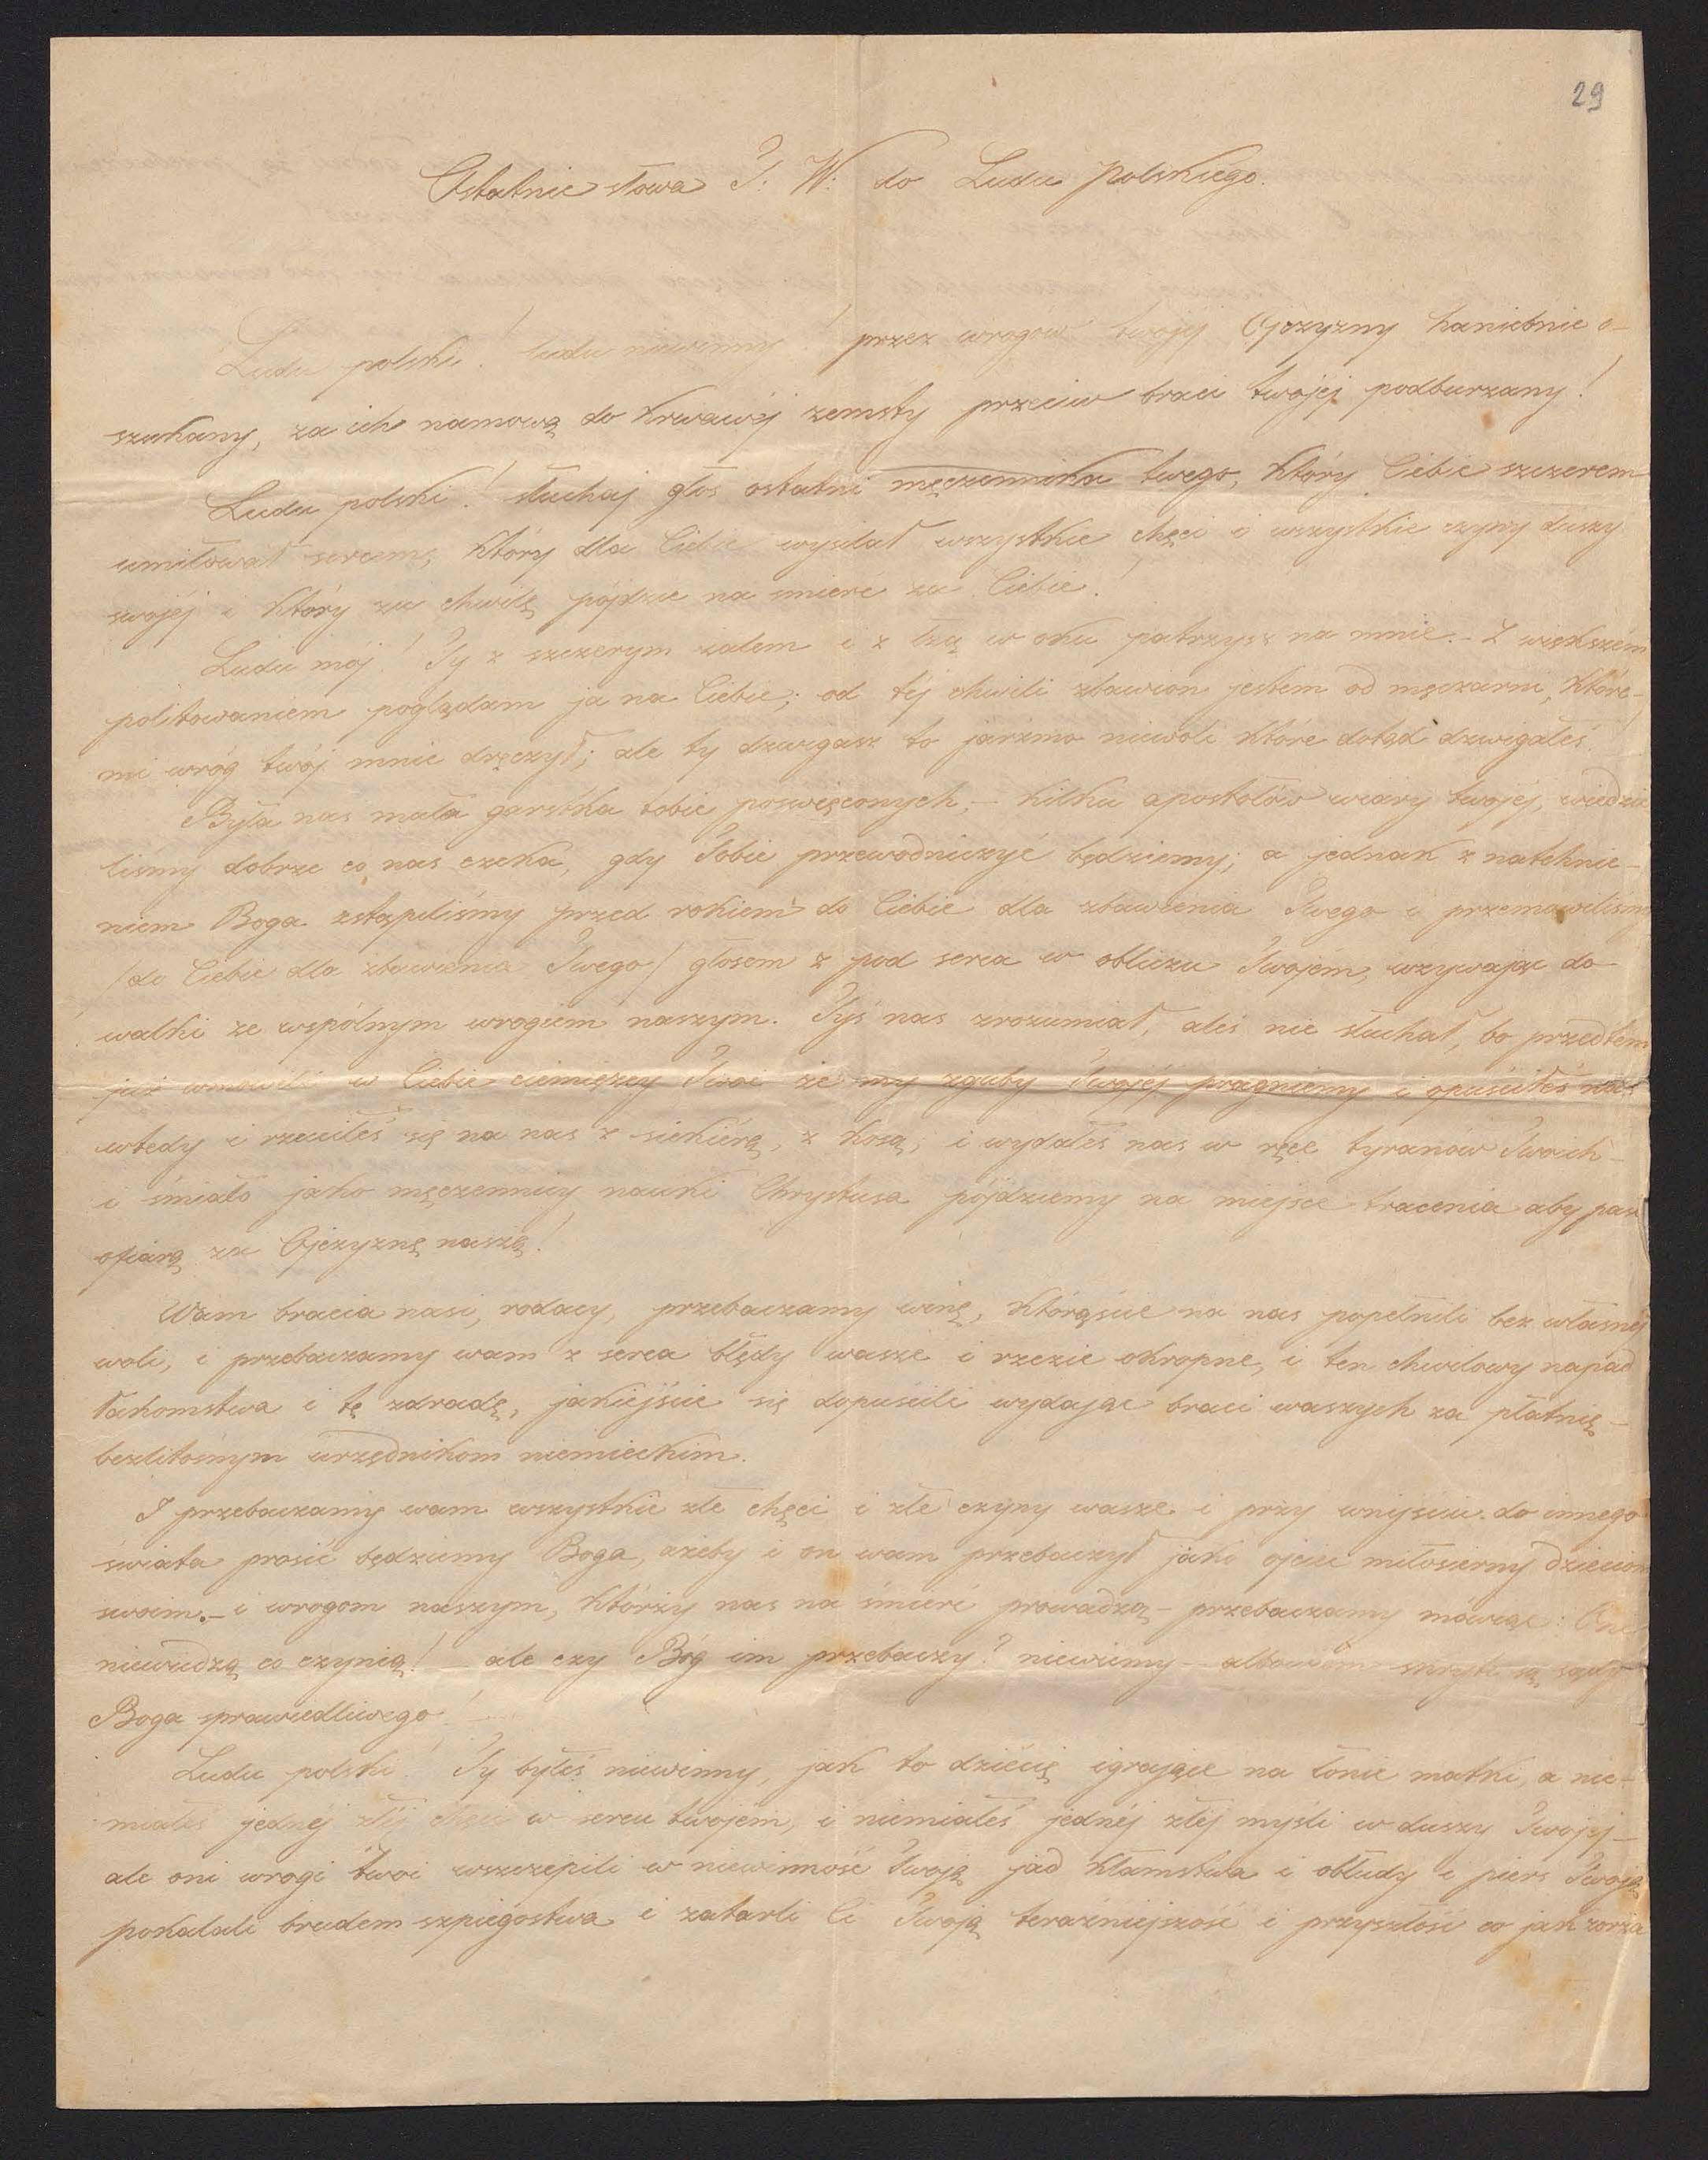 29
Ostatnie słowa T: W: do Ludu Polskiego.
Ludu polski! ludu niewinny! przez wrogów twojéj Ojczyzny haniebnie o-
szukany, za ich namową do krwawéj zemsty przeciw braci twojéj podburzany!
Ludu polski! słuchaj głos ostatni męczennika twego, który Ciebie szczerem
umiłował sercem, który dla Ciebie wysilał wszystkie chęci i wszystkie czyny duszy
swojéj i który za chwilę pójdzie na śmierć za Ciebie!
Ludu mój! Ty z szczerym żalem i z łzą w oku patrzysz na mnie.- Z większém
politowaniem poglądam ja na Ciebie; od téj chwili zbawion jestem od męczarni, które-
mi wróg twój mnie dręczył; ale ty dzwigasz to jarzmo niewoli które dotąd dzwigałeś!
Była nas mała garstka tobie poświęconych;- kilku apostołów wiary twojéj, wiedzie
liśmy dobrze co nas czeka, gdy Tobie przewodniczyć będziemy; a jednak z natchnie-
niem Boga zstąpiliśmy przed rokiem do Ciebie dla zbawienia Twego i przemawiliśmy
/do Ciebie dla zbawienia Twego/ głosem z pod serca w obliczu Twojém, wzywając do
walki ze wspólnym wrogiem naszym. Tyś nas zrozumiał, aleś nie słuchał, bo przedtem
już wmówili w Ciebie ciemięzcy Twoi że my zguby Twojéj pragniemy i opuściłeś nas
wtedy i rzuciłeś się na nas z siekiérą, z kosą; i wydałeś nas w ręce tyranów Twoich-
i śmiało jako męczennicy nauki Chrystusa pójdziemy na miejsce tracenia aby paść
ofiarą za Ojczyznę naszą!
Wam bracia nasi, rodacy, przebaczamy winę, którąście na nas popełnili bez własnéj
woli, i przebaczamy wam z serca błędy wasze i rzezie okropne, i ten chwilowy napad
łakomstwa i tę zdradę, jakiéjście się dopuścili wydając braci waszych za płatnię-
bezlitośnym urzędnikom niemieckim.
I przebaczamy wam wszystkie złe chęci i złe czyny wasze i przy wnijściu do innego
świata prosić będziemy Boga, ażeby i on wam przebaczył jako ojciec miłosierny dzieciom
swoim.- i wrogom naszym, którzy nas na śmierć prowadzą - przebaczamy mówiąc: Oni
niewiedzą co czynią! ale czy Bóg im przebaczy? niewiemy - albowiem skryte są sądy
Boga sprawiedliwego!
Ludu polski! Ty byłeś niewinny, jak to dziécię igrające na łonie matki, a nie-
miałeś jednéj złéj chęci w sercu twojém, i niemiałeś jednéj złéj myśli w duszy Twojéj-
ale oni wrogi Twoi wszczepili w niewinność Twoją jad kłamstwa i obłudy i pierś Twoją
pokalali brudem szpiegostwa i zatarli Ci Twoją teraźniejszość i przyszłość co jak zorza